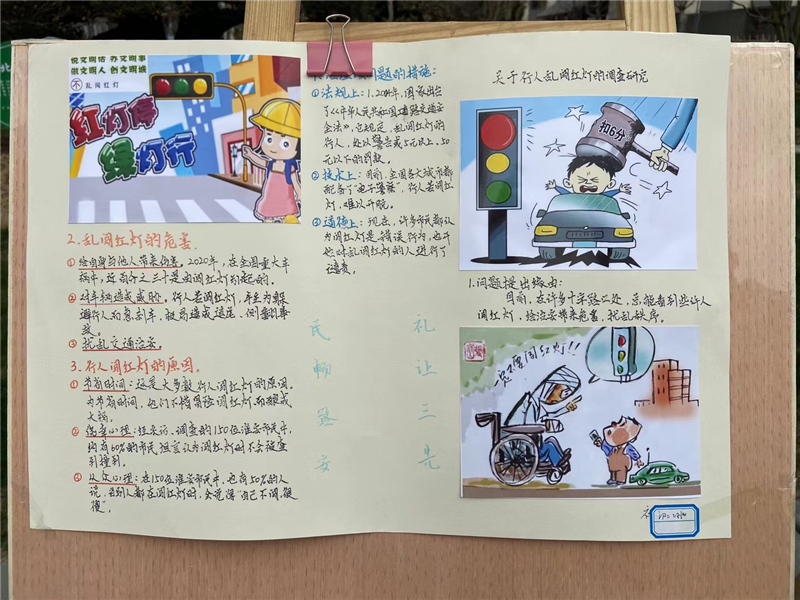 关于行人乱闯红灯的调查研究
扣6分
1.问题提出缘由:
目前,在许多十字路口处,总能看到些行人
闯红灯,给治安带来危害,扰乱秩序。
一定不要闯红灯!!
说文明话 办文明事
做文明人 创文明城
不乱闯红灯
红灯停
绿灯行
2.乱闯红灯的危害.
①给自身与他人带来伤害。2020年,在全国重大车
祸中,近百分之三十是由闯红灯引起的。
②对车辆造成威胁。行人若闯红灯,车主为躲
避行人而急刹车,极易造成追尾、侧翻等事
故。
③扰乱交通治安。
3.行人闯红灯的原因。
①节省时间:这是大多数行人闯红灯的原因。
为节省时间,他们不惜冒险闯红灯而酿成
大祸。
②侥幸心理:经采访、调查的150位淮安市民中,
约有60%的市民坦言认为闯红灯时不会被查
到撞到。
③从众心理:在150位淮安市民中,也有50%的人
说,当别人都在闯红灯时,会觉得“自己不闯,很
傻”。
问题的措施:
①法规上:1.2004年,国家出台
了《中华人民共和国道路交通安
全法》,也规定,乱闯红灯的
行人,处以警告或5元以上,50
元以下的罚款。
②技术上:目前,全国各大城市都
配备了“电子警察”,行人若闯红
灯,难以开脱。
③道德上:现在,许多市民都认
为闯红灯是错误行为,也开
始对乱闯红灯的人进行了
谴责。
礼
让
三
先
民
畅
安
北